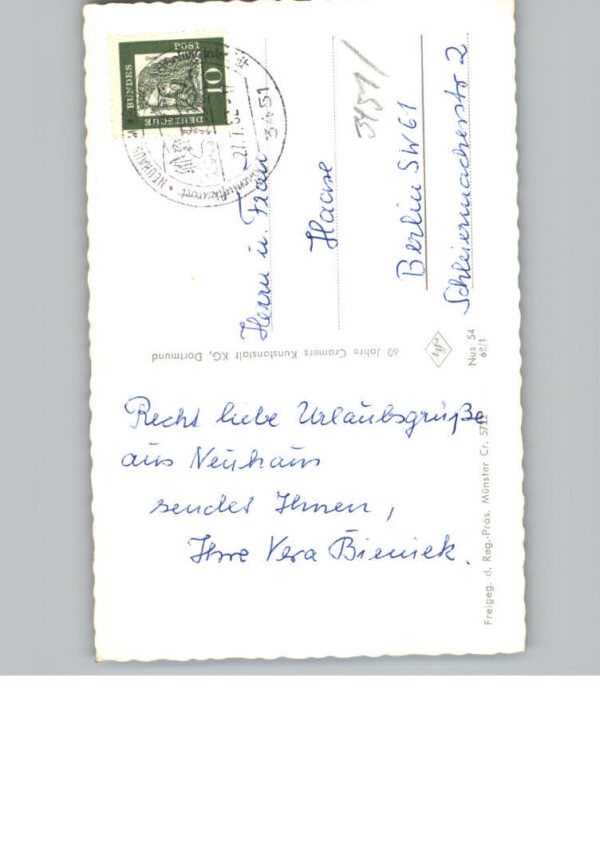 Recht liebe Urlaubsgrüße
aus Neuhaus
sendet Ihnen,
Ihre Vera Bieniek.
Herrn u. Frau
Haase
Berlin SW 61
Schleiermacherstr 2
3451/
DEUTSCHE
BUNDES
10
NEUHAUS
3451
60 Jahre Cramers Kunstanstalt KG, Dortmund
Nus 54
62/1
Freigeg. d. Reg.-Präs. Münster Cr. 5712